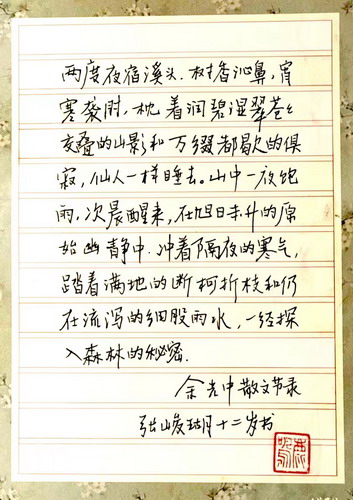 两度夜宿溪头.树香沁鼻,宵
寒袭肘,枕着润碧湿翠苍苍
交叠的山影和万缀都歇的俱
寂,仙人一样睡去。山中一夜饱
雨,次晨醒来,在旭日未升的原
始幽静中.冲着隔夜的寒气,
踏着满地的断柯折枝和仍
在流泻的细股雨水,一径探
入森林的秘密.
余光中散文节录
张山
月十二岁书